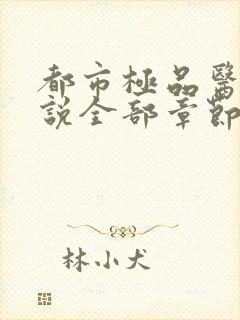 都市極品醫
說全部章節
林小犬